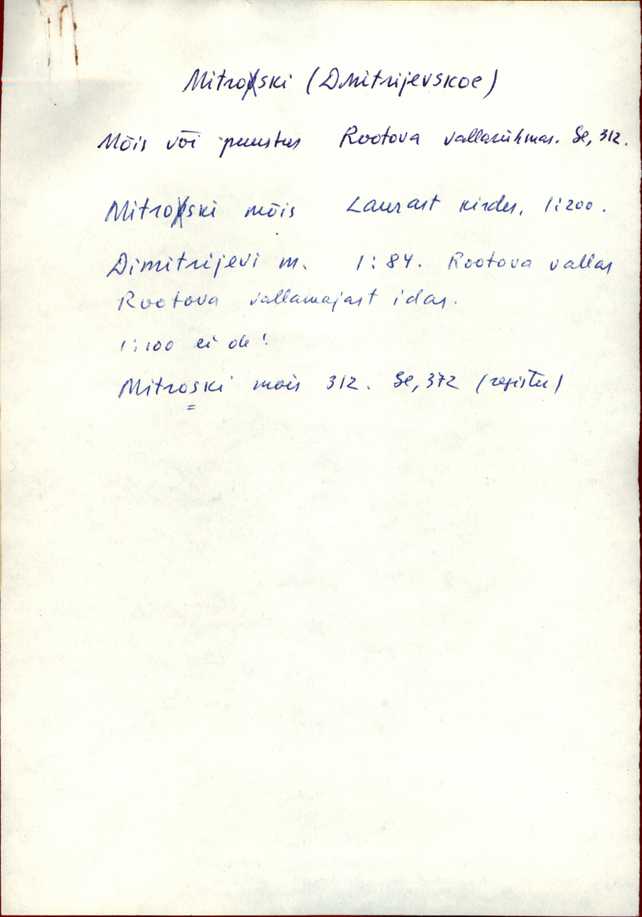 Mitroski (Dmitrijevskoe)
Mõis või puustus Rootova vallarühmas. Se, 312.
Mitroski mõis Laurast kirdes, 1:200.
Dimitrijevi m. 1:84. Rootova vallas
Rootova vallamajast idas.
1:100 ei ole!
Mitroski mõis 312. Se, 372 (register)